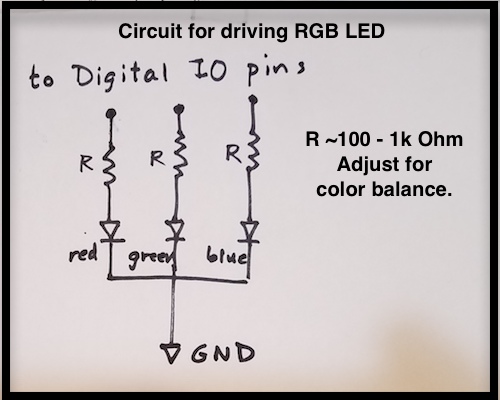 Circuit for driving RGB LED
to Digital IO pins
R R R
R ~100 - 1k Ohm
Adjust for
color balance.
red green blue
GND